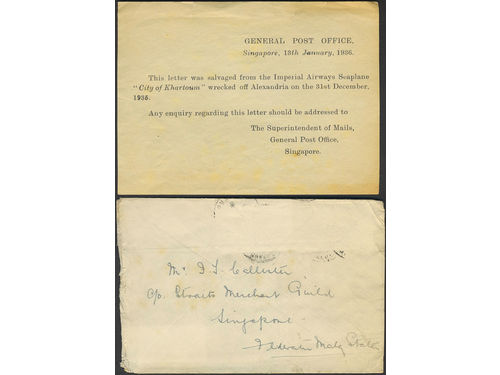 GENERAL POST OFFICE,
Singapore, 13th January, 1936.
This letter was salvaged from the Imperial Airways Seaplane
"City of Khartoum" wrecked off Alexandria on the 31st December,
1935.
Any enquiry regarding this letter should be addressed to
The Superintendent of Mails,
General Post Office,
Singapore.
Mr
c/o Straits Merchant Guild
Singapore.
Federated Malay States